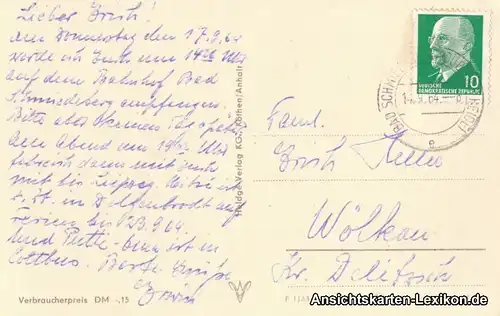 Lieber Erich!
Am Donnerstag den 17.9.64
werde ich Euch um 14 Uhr
auf dem Bahnhof Bad
Schmiedeberg empfangen.
Bitte aber kommen.
Am Abend um 19 Uhr
fahre ich dann mit Euch
mit bis Leipzig.
z. Zt. in auf
Ferien bis 23.9.64.
Und Putti - ist in
Cottbus. Beste Grüße
Erwin
Verbraucherpreis DM -,15
Heldge-Verlag KG., Köthen/Anhalt
10
DEUTSCHE
DEMOKRATISCHE REPUBLIK
BAD SCHMIEDEBERG
9.64
Fam.
Erich Keller
Wölkau
Kr. Delitzsch
© Ansichtskarten-Lexikon.de